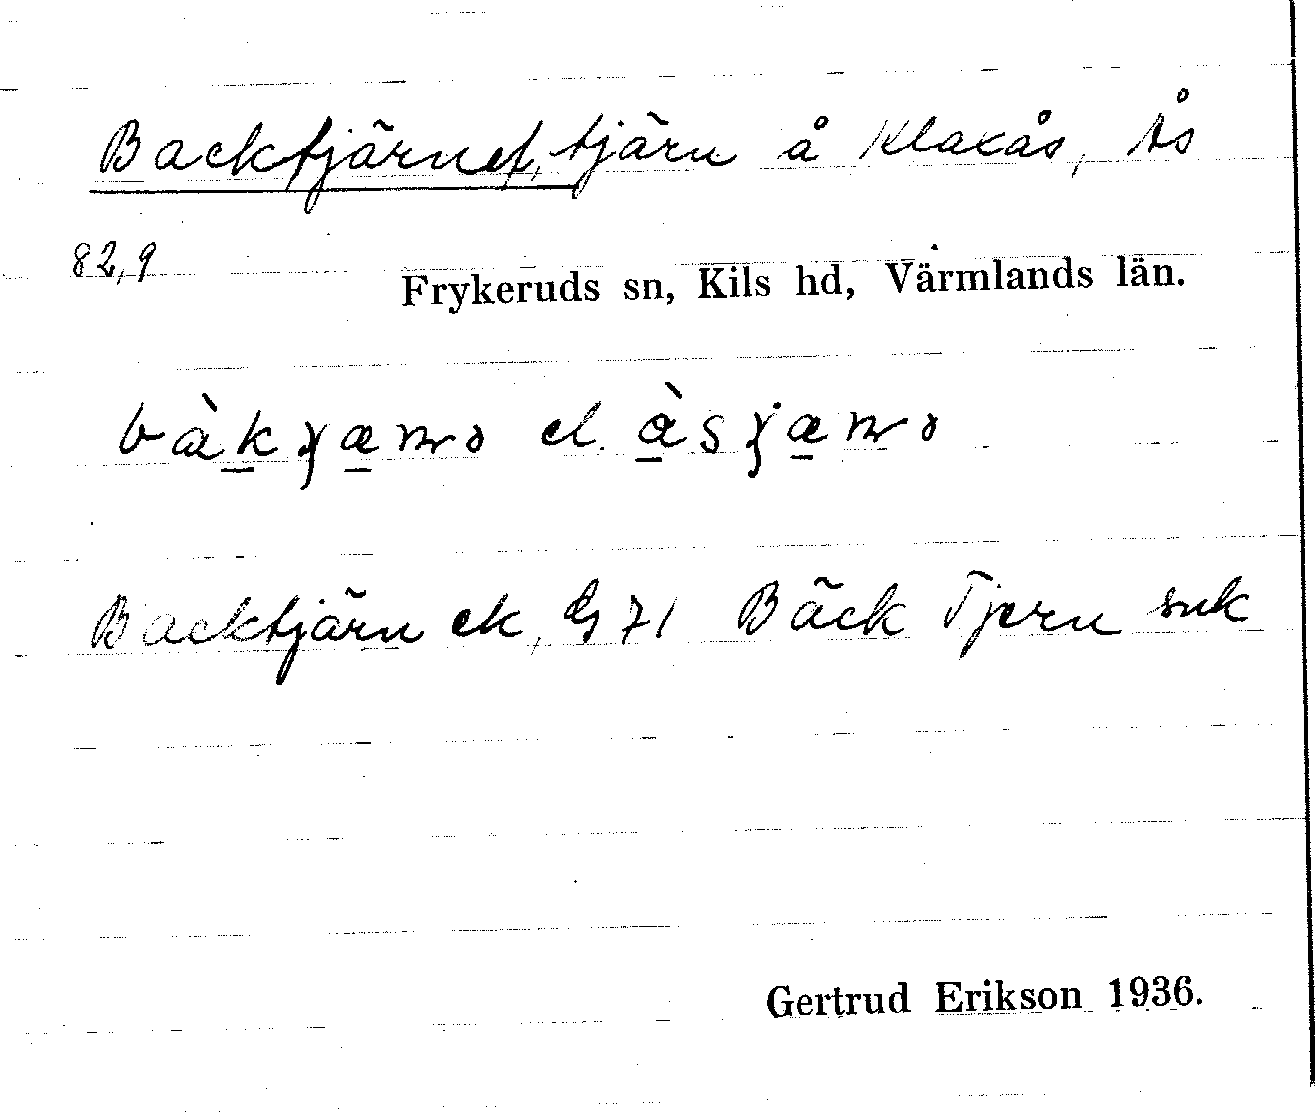 Backtjärnet, tjärn å Klaxås, Ås
82,9
Frykeruds sn, Kils hd, Värmlands län.
el.
Backtjärn ek, Bäck Tjern snk
Gertrud Erikson 1936.